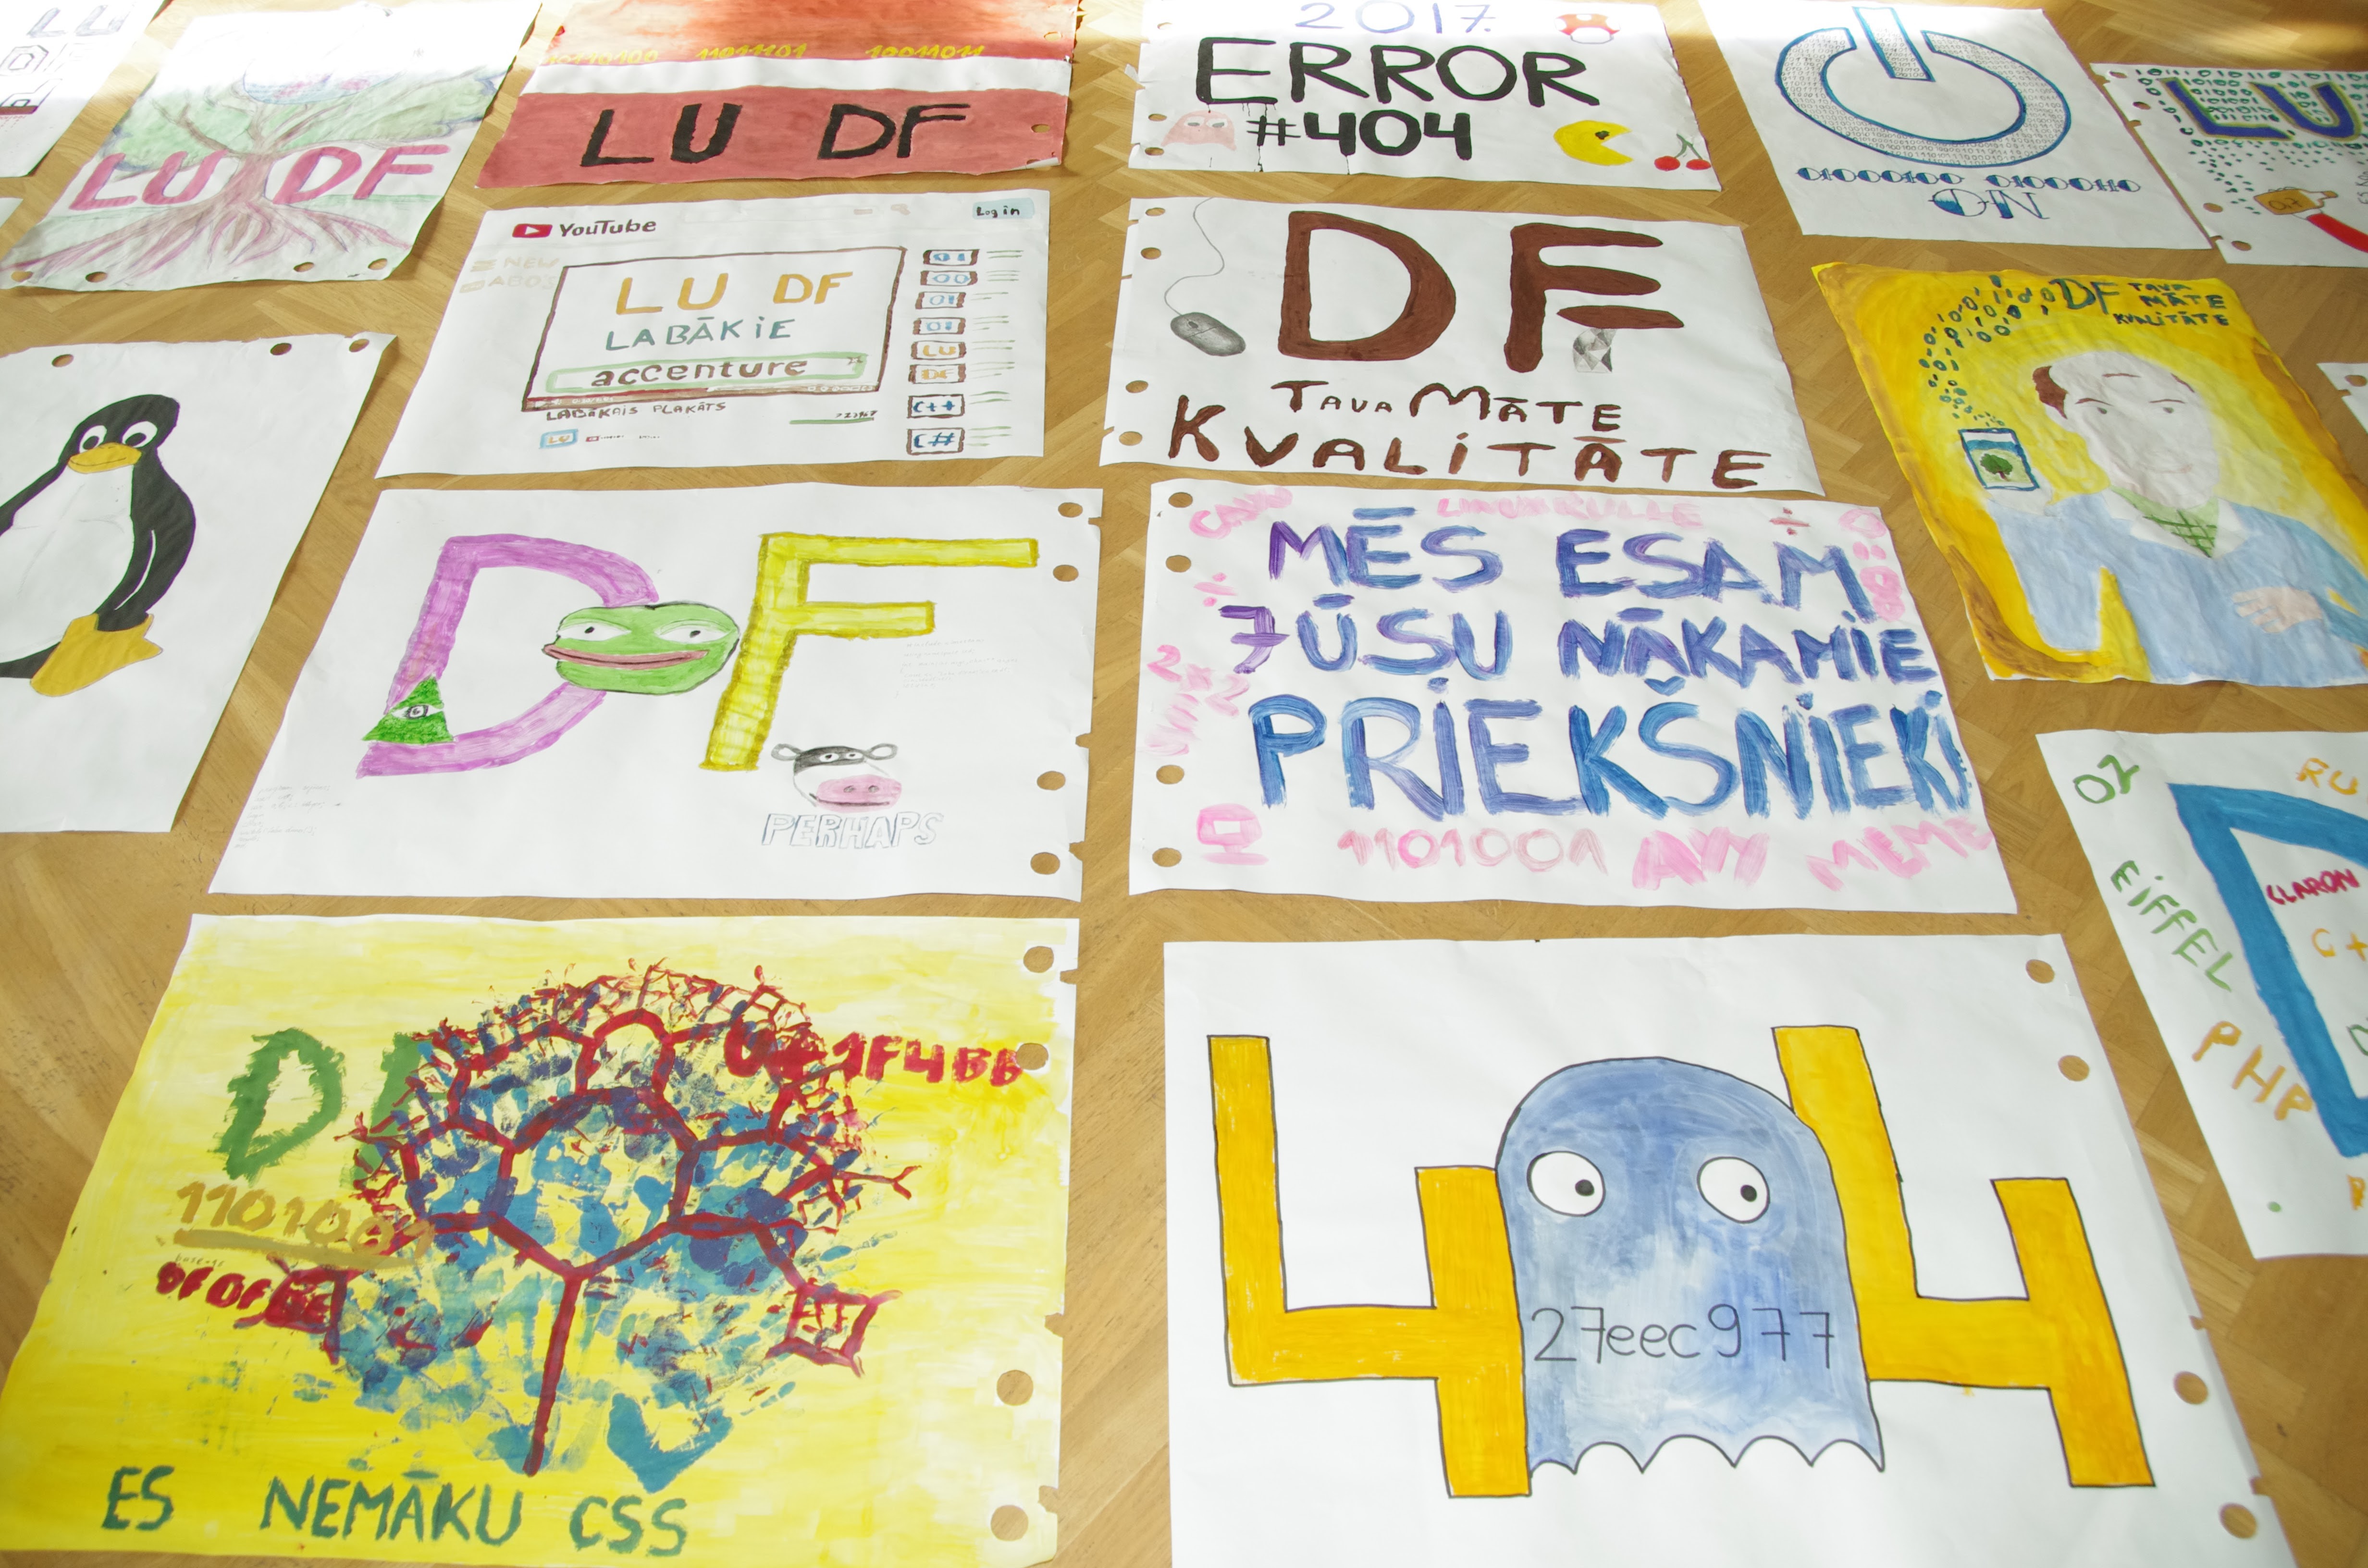 LU
LU DF
11011101 10011011
LU DF
2017.
ERROR
#404
01000100 01000110
ON
LU
YouTube
Log in
NEW
LU DF
LABĀKIE
accenture
LABĀKAIS PLAKĀTS
01
00
01
01
LU
DF
C++
C#
LU
DF
TAVA MĀTE
KVALITĀTE
DF TAVA
MĀTE
KVALITĀTE
DF
PERHAPS
MĒS ESAM
JŪSU NĀKAMIE
PRIEKŠNIEKI
2x2
1101001 AYY MEME
OZ
RU
EIFFEL
PHP
CLARON
DF
1F4BB
1101001
DFDF
ES NEMĀKU CSS
4 4
27eec977